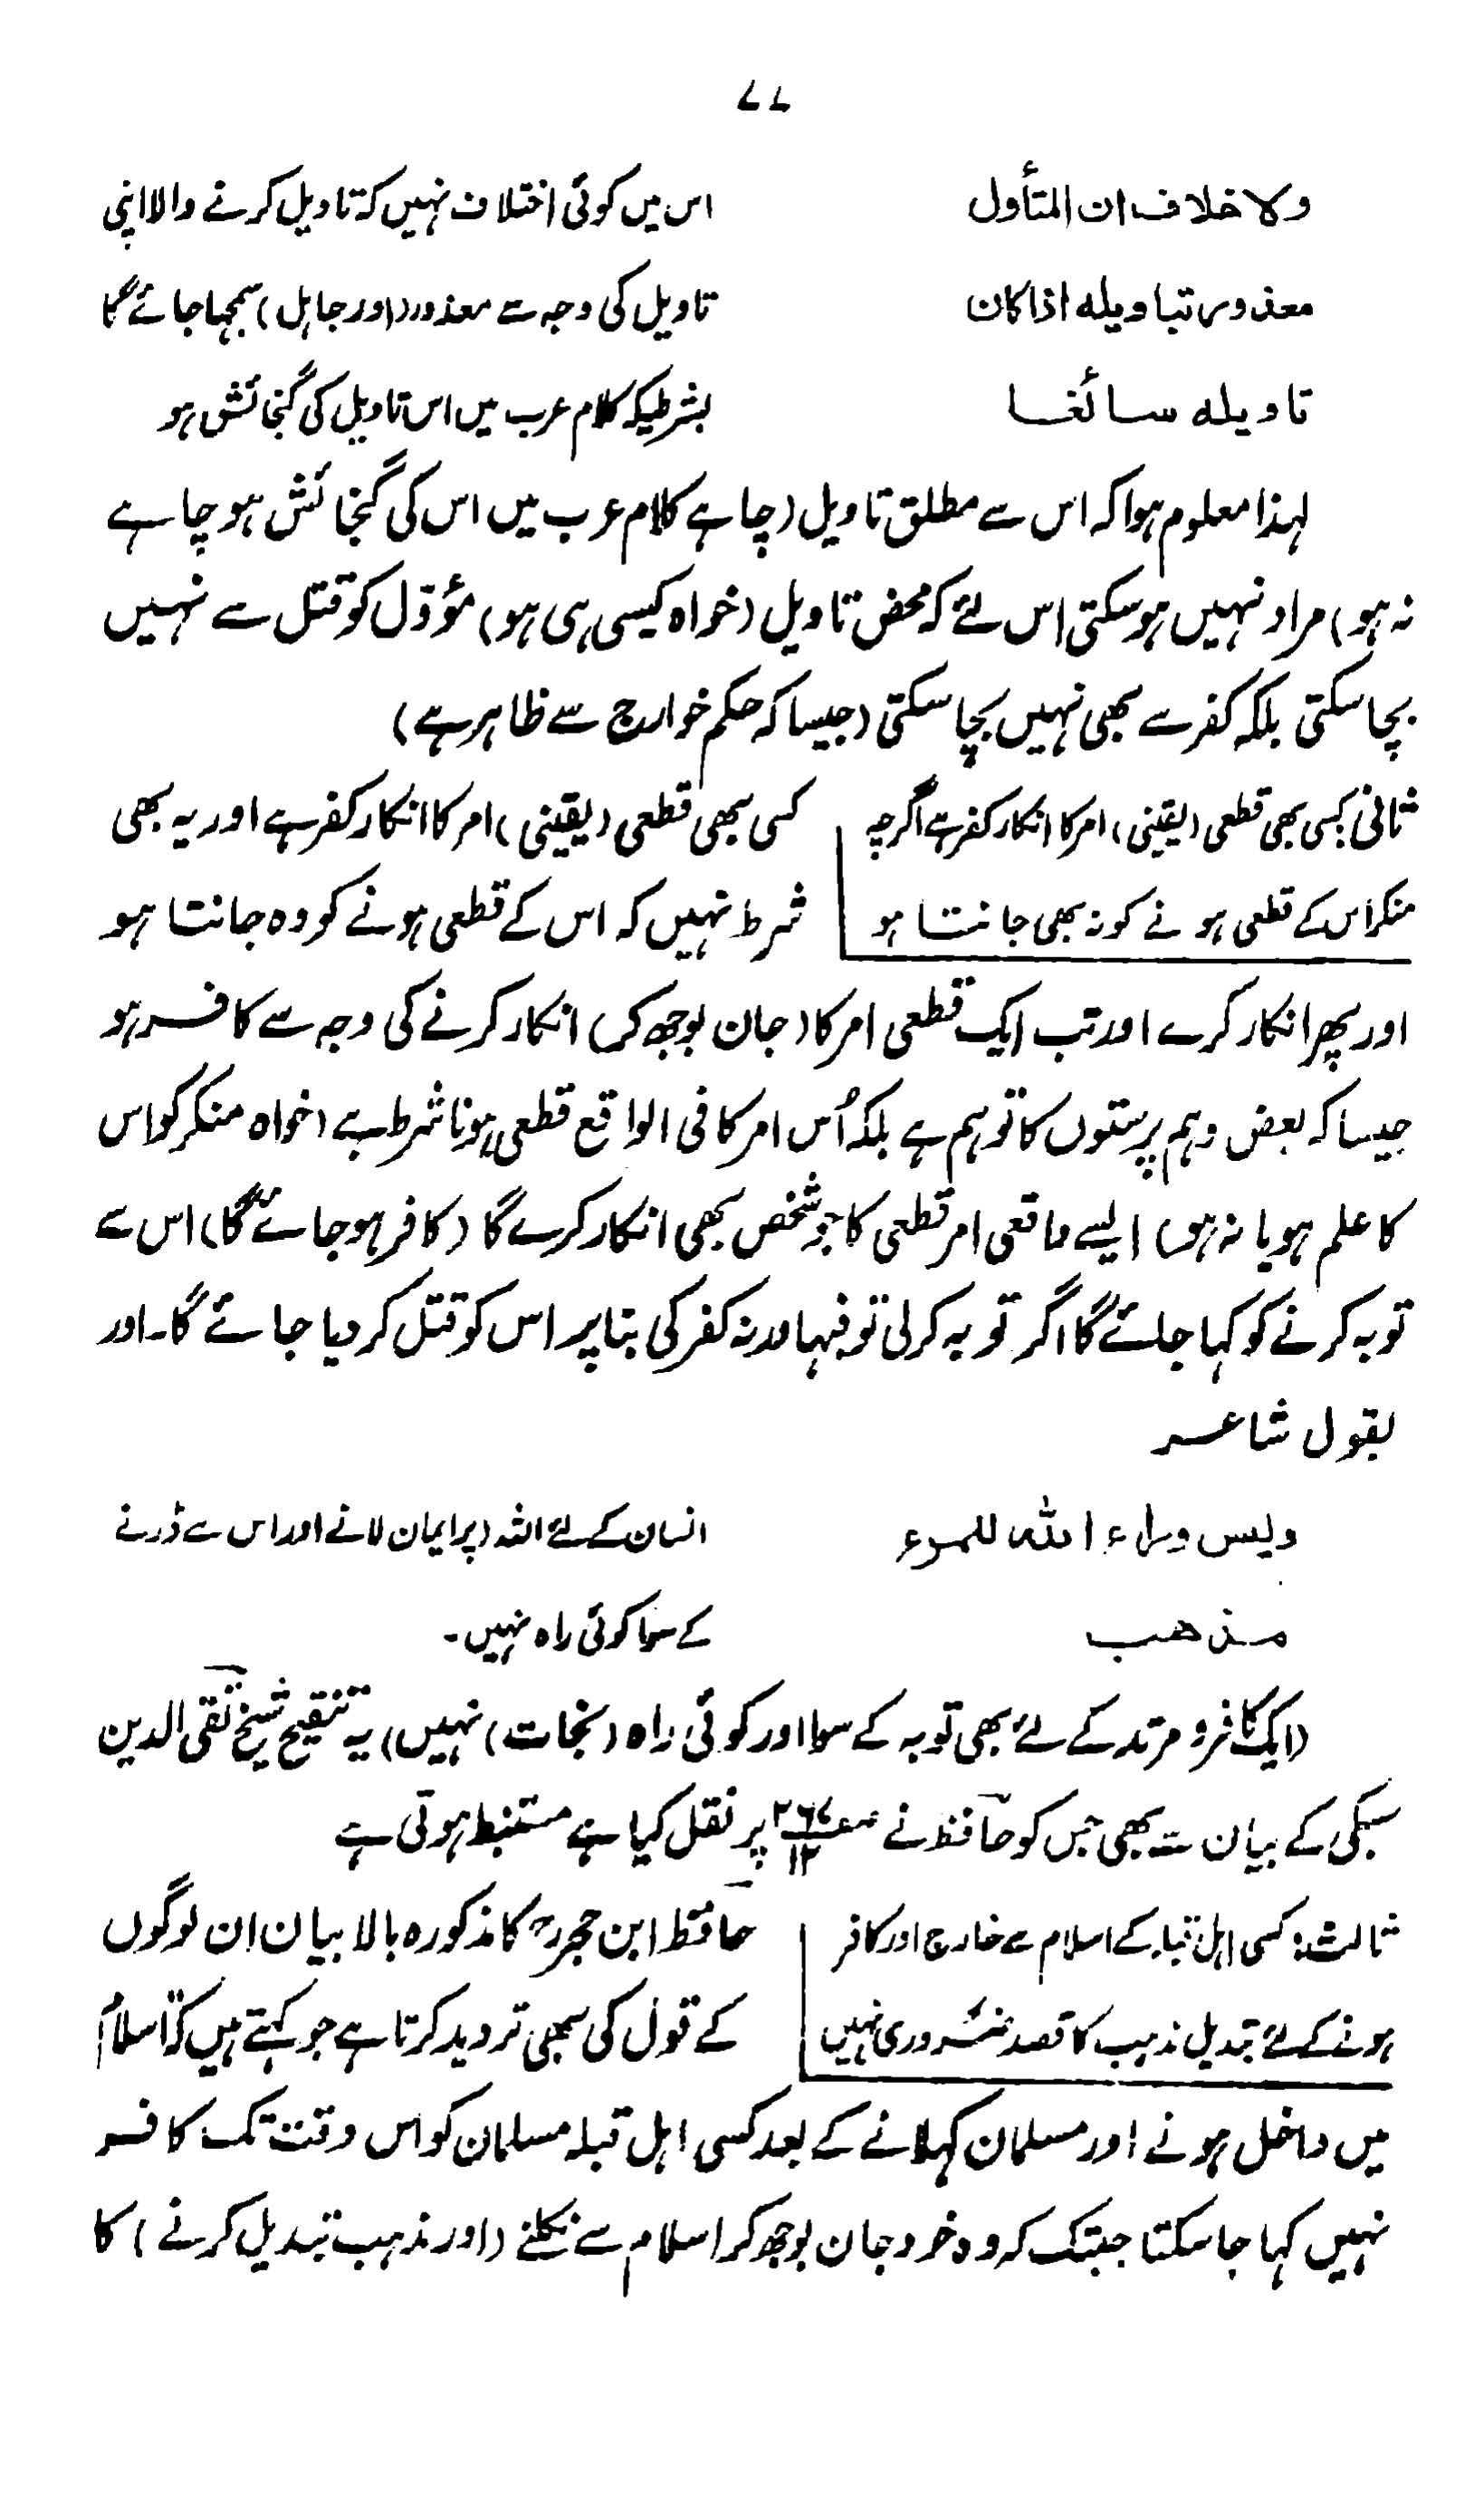 ۷۷
ولا خلاف ان المتأول اس میں کوئی اختلاف نہیں کہ تاویل کرنے والا اپنی
معذور بتاویله اذا کان تاویل کی وجہ سے معذور (اور جاہل) سمجھا جائے گا
تاویله سائغا بشرطیکہ کلام عرب میں اس تاویل کی گنجائش ہو
لہذا معلوم ہوا کہ اس سے مطلق تاویل (چاہے کلام عرب میں اس کی گنجائش ہو چاہے
نہ ہو) مراد نہیں ہو سکتی اس لئے کہ محض تاویل (خواہ کیسی ہی ہو) مؤوّل کو قتل سے نہیں
بچا سکتی بلکہ کفر سے بھی نہیں بچا سکتی (جیسا کہ حکم خوارج سے ظاہر ہے)
ثانی: کسی بھی قطعی (یقینی) امر کا انکار کفر ہے اگرچہ
منکر اس کے قطعی ہونے کو نہ بھی جانتا ہو
کسی بھی قطعی (یقینی) امر کا انکار کفر ہے اور یہ بھی
شرط نہیں کہ اس کے قطعی ہونے کو وہ جانتا ہو
اور پھر انکار کرے اور تب ایک قطعی امر کا (جان بوجھ کر) انکار کرنے کی وجہ سے کافر ہو
جیسا کہ بعض وہم پرستوں کا توہم ہے بلکہ اُس امر کا فی الواقع قطعی ہونا شرط ہے (خواہ منکر کو اس
کا علم ہو یا نہ ہو) ایسے واقعی امر قطعی کا جو شخص بھی انکار کرے گا (کافر ہو جائے گا) اس سے
توبہ کرنے کو کہا جائے گا اگر توبہ کر لی تو فبہا ورنہ کفر کی بنا پر اس کو قتل کر دیا جائے گا۔ اور
بقول شاعر
ولیس وراء الله للمرء انسان کے لئے اللہ (پر ایمان لانے اور اس سے ڈرنے
مذهب کے سوا کوئی راہ نہیں۔
(ایک کافر و مرتد کے لئے بھی توبہ کے سوا اور کوئی راہ (نجات) نہیں) یہ تنقیح شیخ تقی الدین
سبکی کے بیان سے بھی جس کو حافظ نے ص ۲۶۷/۱۲ پر نقل کیا ہے مستنبط ہوتی ہے
ثالث: کسی اہل قبلہ کے اسلام سے خارج اور کافر
ہونے کے لئے تبدیل مذہب کا قصد ضروری نہیں
حافظ ابن حجرؒ کا مذکورہ بالا بیان ان لوگوں
کے قول کی بھی تردید کرتا ہے جو کہتے ہیں کہ "اسلام
میں داخل ہونے اور مسلمان کہلانے کے بعد کسی اہل قبلہ مسلمان کو اس وقت تک کافر
نہیں کہا جا سکتا جبتک کہ وہ خود جان بوجھ کر اسلام سے نکلنے (اور مذہب تبدیل کرنے) کا